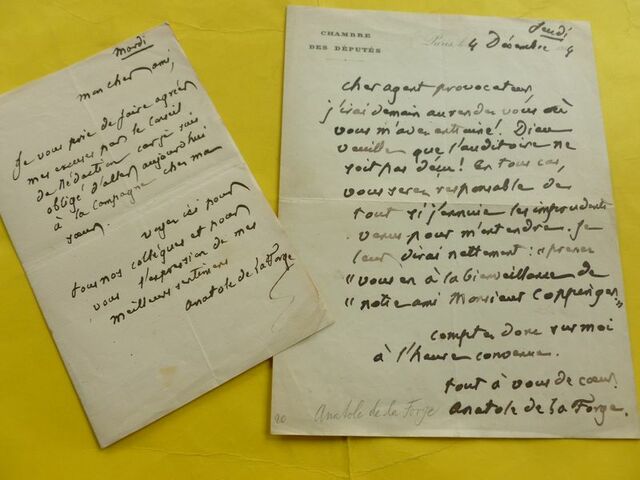 Mardi
Mon cher ami,
Je vous prie de faire agréer
mes excuses par le Conseil
de Rédaction car je suis
obligé d'aller aujourd'hui
à la campagne chez ma
sœur.
Voyez ici pour
tous nos collègues et pour
vous l'expression de mes
meilleurs sentiments
Anatole de la Forge
CHAMBRE
DES DÉPUTÉS
Jeudi
Paris, le 4 Décembre
Cher agent provocateur,
j'irai demain au rendez vous où
vous m'avez entraîné! Dieu
veuille que l'auditoire ne
soit pas déçu! En tous cas,
vous serez responsable de
tout si j'ennuie les imprudents
venus pour m'entendre. Je
leur dirai nettement: "prenez
"vous en à la bienveillance de
"notre ami Monsieur Coppenger"
comptez donc sur moi
à l'heure convenue.
tout à vous de cœur
Anatole de la Forge.
Anatole de la Forge